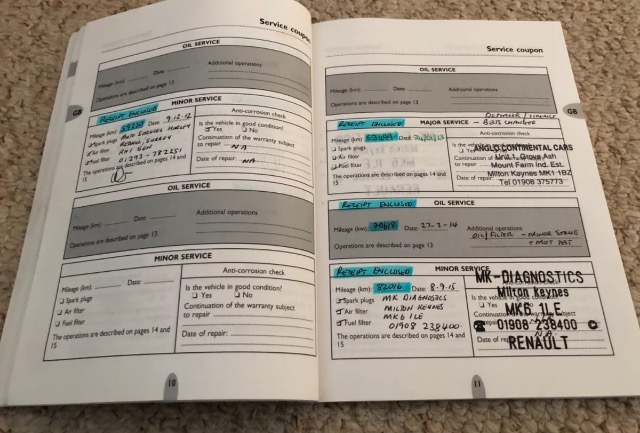 Service coupon
OIL SERVICE
Mileage (km): Date: Additional operations
Operations are described on page 13
GB
MINOR SERVICE
RECEIPT ENCLOSED
Anti-corrosion check
Mileage (km): Date: 9.12.12
Is the vehicle in good condition?
Yes No
Spark plugs
Air filter
Fuel filter
01293-782251
Continuation of the warranty subject
to repair NA
Date of repair: NA
The operations are described on pages 14 and
15
OIL SERVICE
Mileage (km): Date: Additional operations
Operations are described on page 13
MINOR SERVICE
Mileage (km): Date:
Anti-corrosion check
Is the vehicle in good condition?
Yes No
Spark plugs
Air filter
Fuel filter
Continuation of the warranty subject
to repair
Date of repair:
The operations are described on pages 14 and
15
10
Service coupon
OIL SERVICE
Mileage (km): Date: Additional operations
Operations are described on page 13
GB
RECEIPT ENCLOSED
MAJOR SERVICE - BELTS CHANGED
Anti-corrosion check
Mileage (km): Date:
Spark plugs
Air filter
Fuel filter
The operations are described on pages 14 and
15
ANGLO CONTINENTAL CARS
Unit 1, Grove Ash
Mount Farm Ind. Est.
Milton Keynes MK1 1BZ
Tel 01908 375773
RECEIPT ENCLOSED
OIL SERVICE
Mileage (km): 70618 Date: 27-2-14
Additional operations
OIL/FILTER - MINOR SERVICE
+ MOT TEST
Operations are described on page 13
RECEIPT ENCLOSED
MINOR SERVICE
Mileage (km): 82016 Date: 8.9.15
Spark plugs MK DIAGNOSTICS
Air filter MILTON KEYNES
MK6 1LE
Fuel filter 01908 238400
The operations are described on pages 14 and
15
MK-DIAGNOSTICS
Milton Keynes
MK6 1LE
☎ 01908 238400
RENAULT
11